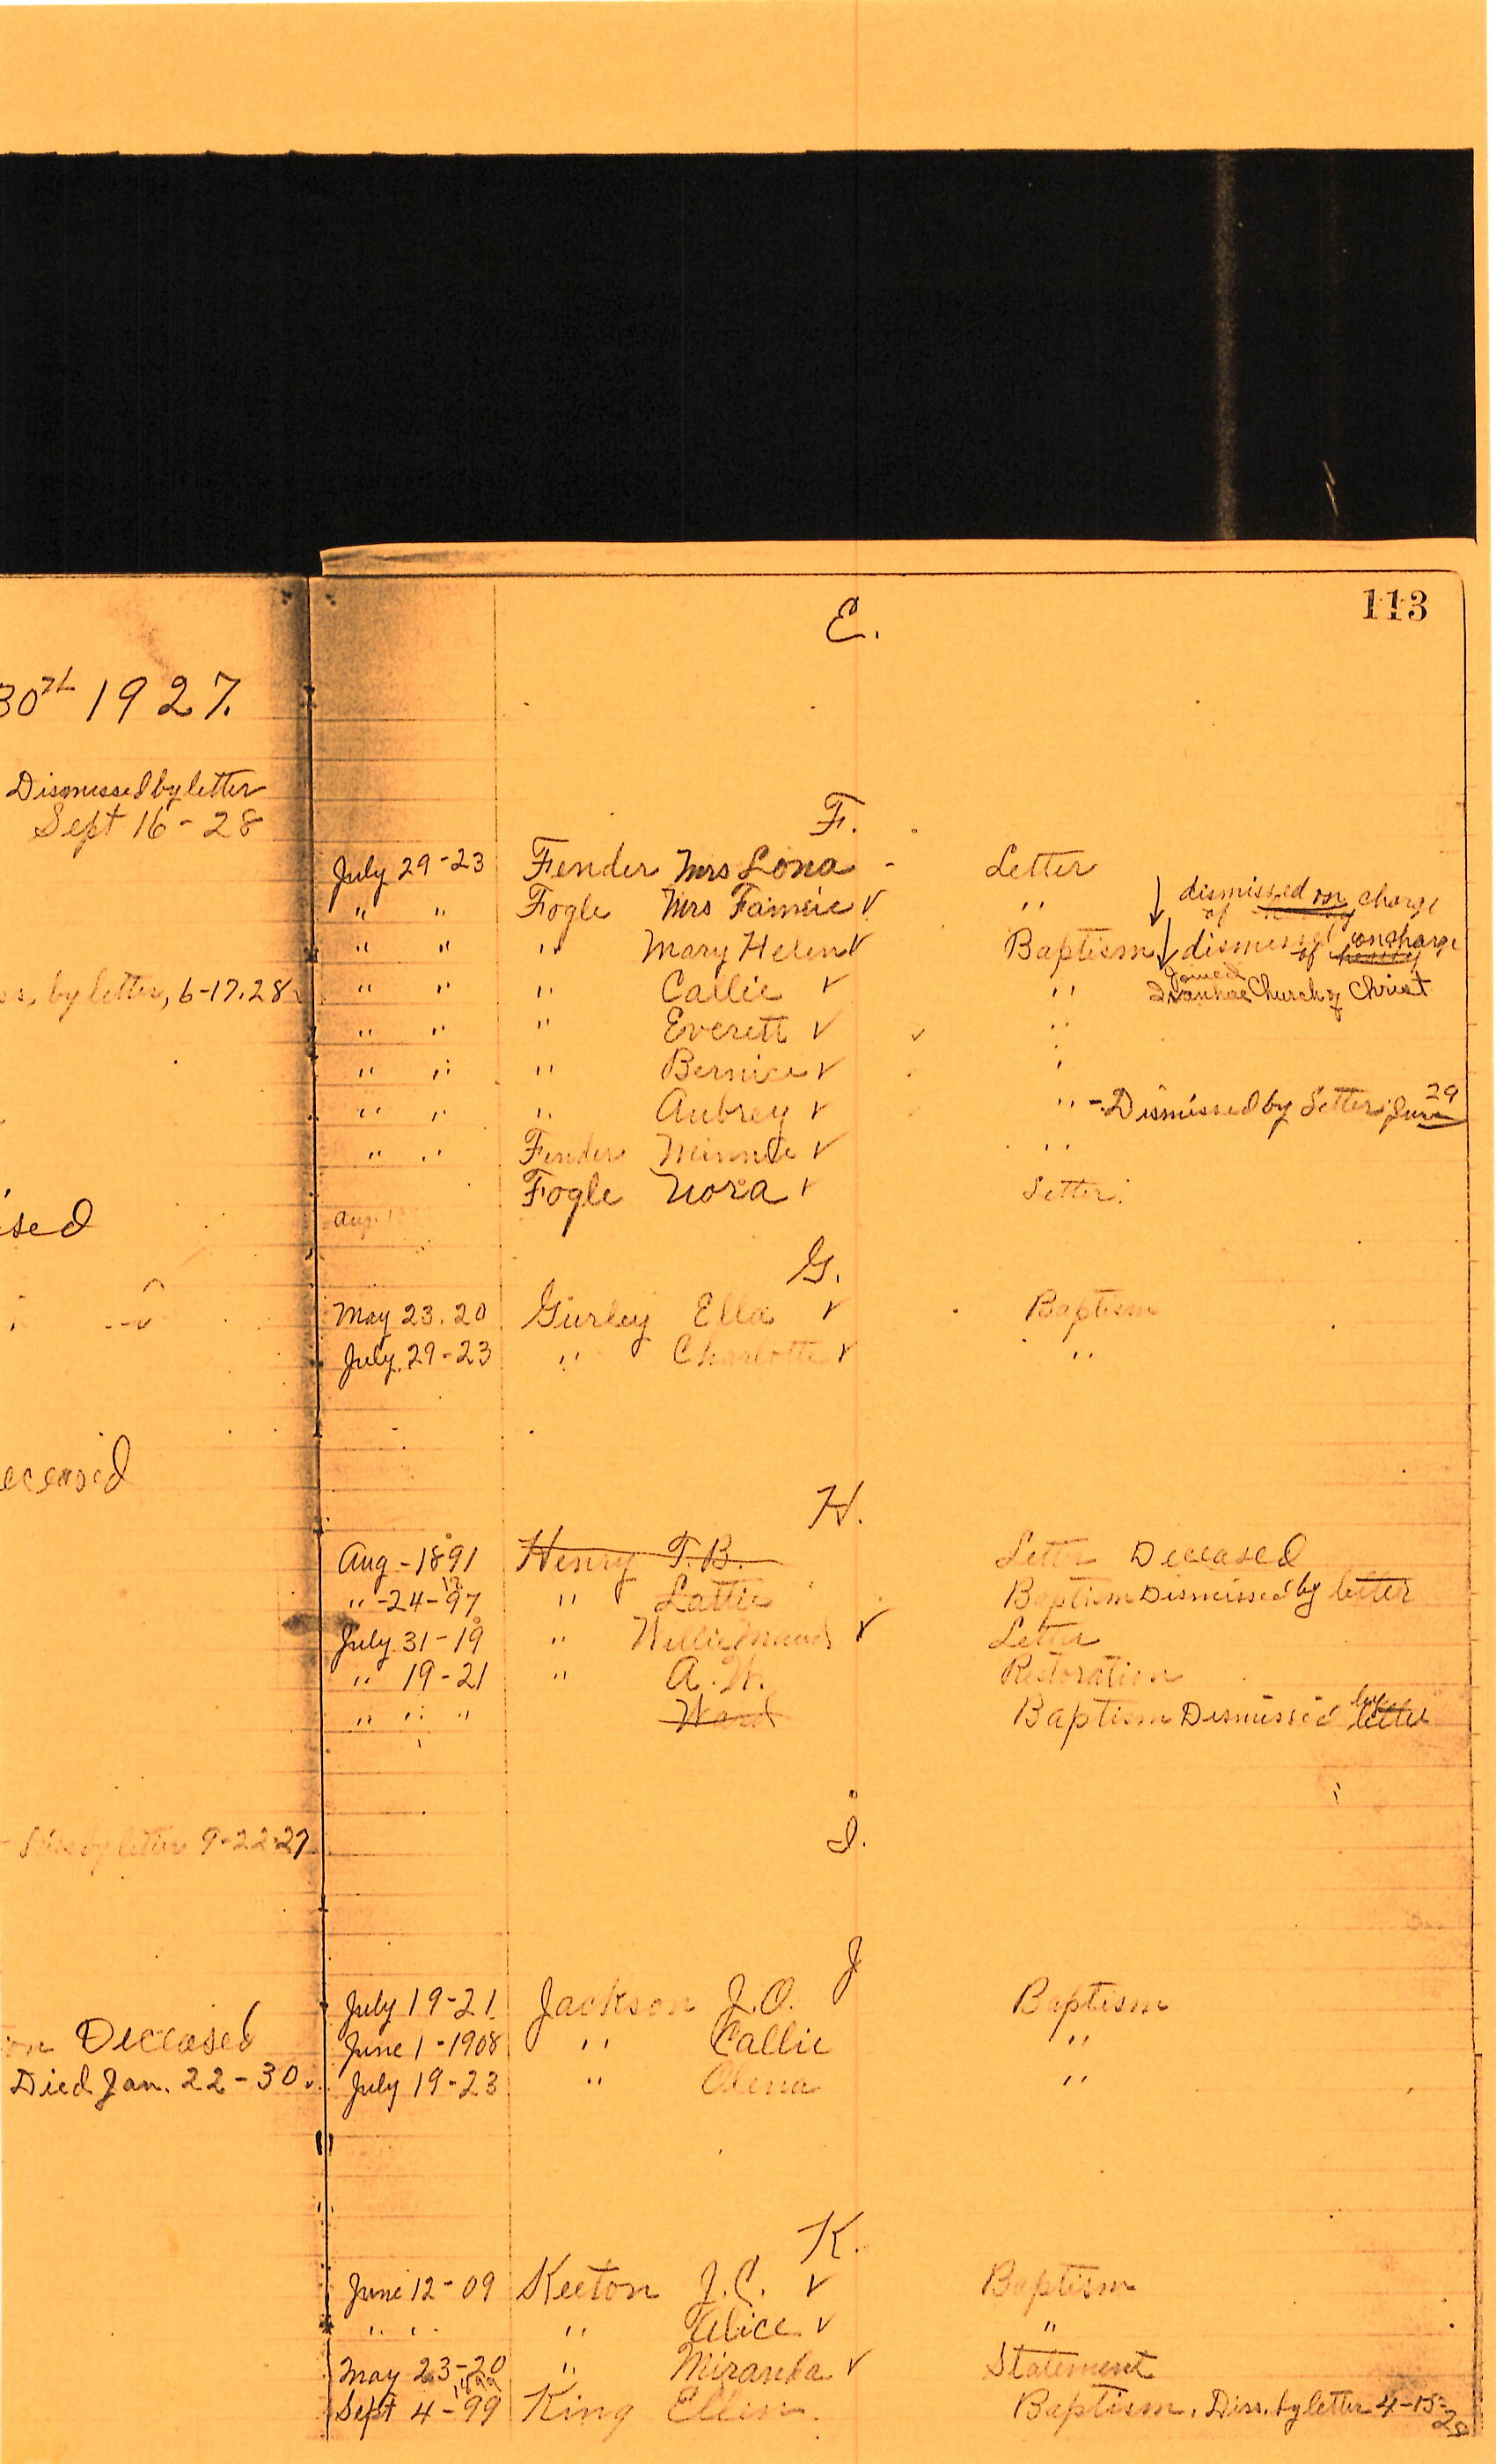 113
E.
30th 1927.
Dismissed by letter
Sept 16-28
F.
July 29-23 Fender Mrs Lona - Letter
" " Fogle Mrs Fannie ✓ " dismissed on charge of
" " " Mary Helen ✓ Baptism dismissed on charge of heresy
by letter, 6-17.28
" " " Callie ✓ " joined Ivanhoe Church of Christ
" " " Everett ✓ "
" " " Bernice ✓ "
" " " Aubrey ✓ " - Dismissed by Letter June 29
" " Fender Minnie ✓ "
Fogle Nora ✓ Letter.
sed
Aug.
G.
May 23.20 Gurley Ella ✓ Baptism
July 29-23 " Charlotte ✓ "
eceased
H.
Aug - 1891 Henry T.B. Letter Deceased
" -24-97 " Lattie Baptism Dismissed by letter
July 31-19 " Willie Maud ✓ Letter
" 19-21 " A.W. Restoration
" " " Ward Baptism Dismissed by letter
I.
Diss by letter 9-22-27
J
July 19-21 Jackson J.O. Baptism
Deceased
June 1-1908 " Callie "
Died Jan. 22-30.
July 19-23 " Olena "
K.
June 12-09 Keeton J.C. ✓ Baptism
" " " Alice ✓ "
May 23-20 " Miranda ✓ Statement
Sept 4-99 King Ellen. Baptism. Diss. by letter 4-15-28